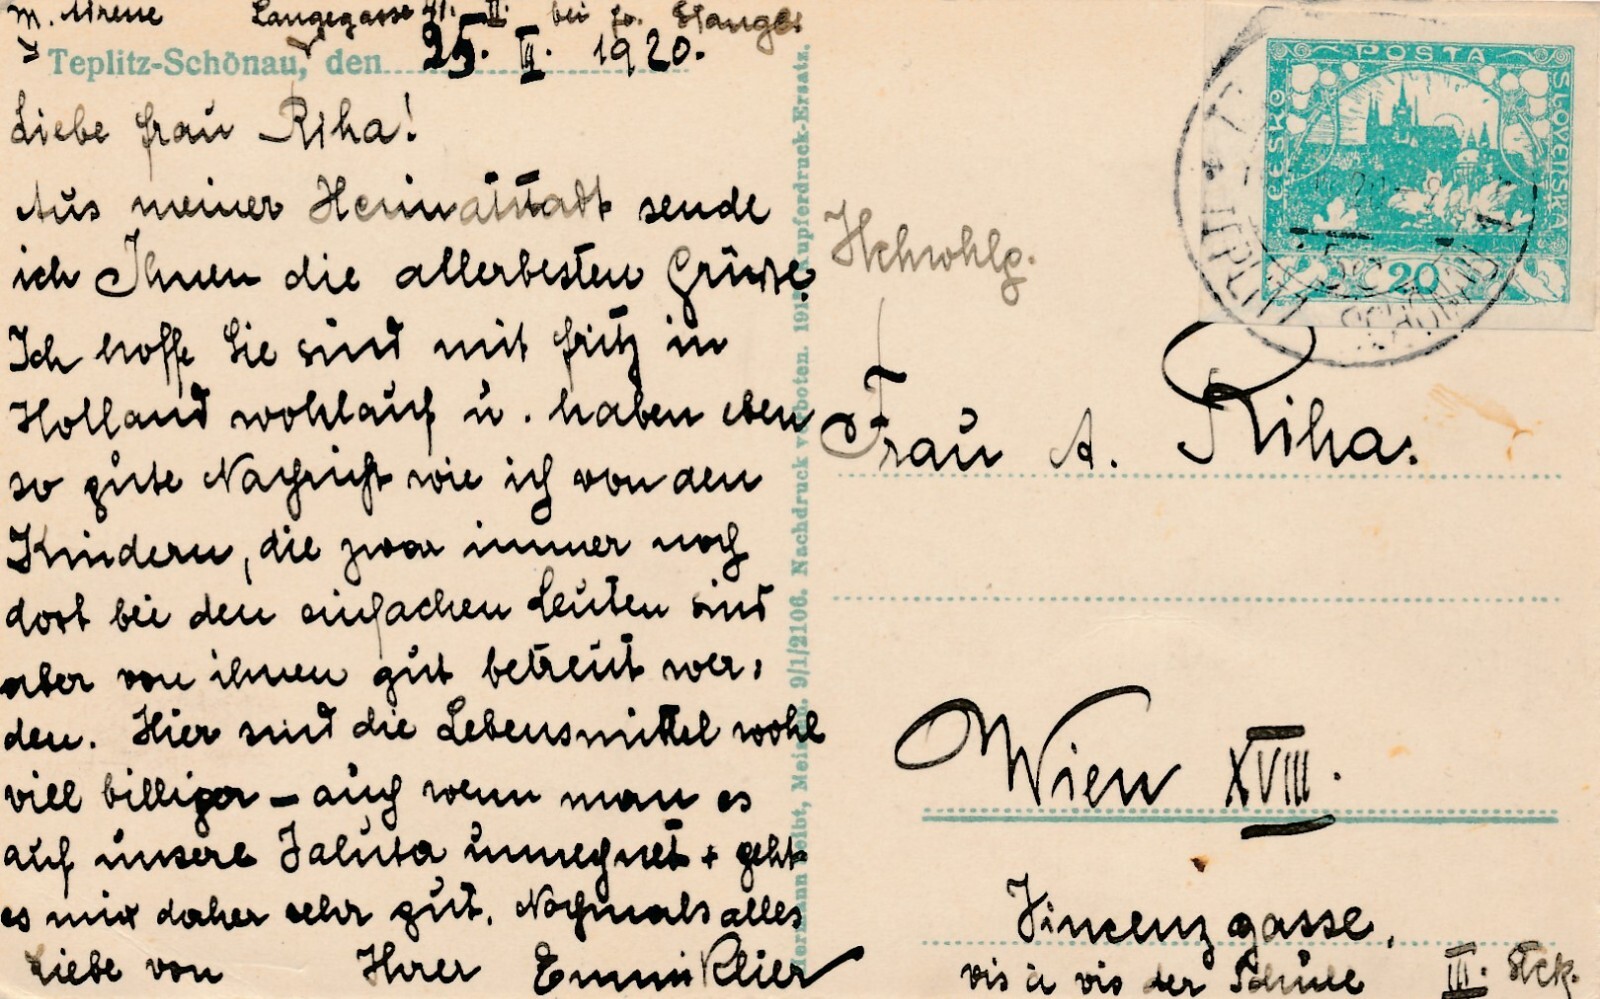 m. Adresse Langegasse 41. II. bei Fr. Stangl.
Teplitz-Schönau, den 25. III. 1920.
Liebe Frau Riha!
Aus meiner Heimatstadt sende
ich Ihnen die allerbesten Grüsse.
Ich hoffe Sie sind mit Fritz in
Holland wohlauf u. haben eben
so gute Nachricht wie ich von den
Kindern, die zwar immer noch
dort bei den einfachen Leuten sind
aber von ihnen gut betreut wer,
den. Hier sind die Lebensmittel wohl
viel billiger – auch wenn man es
auf unsere Valuta umrechnet + geht
es mir daher sehr gut. Nochmals alles
Liebe von Ihrer Emmi Klier
Hermann Seibt, Meissen. 9/1/2106. Nachdruck verboten. Kupferdruck-Ersatz.
POSTA
ČESKO
SLOVENSKÁ
20
TEPLITZ
SCHÖNAU
Hchwohlg.
Frau A. Riha.
Wien XVIII.
Vincenzgasse,
vis à vis der Schule III. Stck.